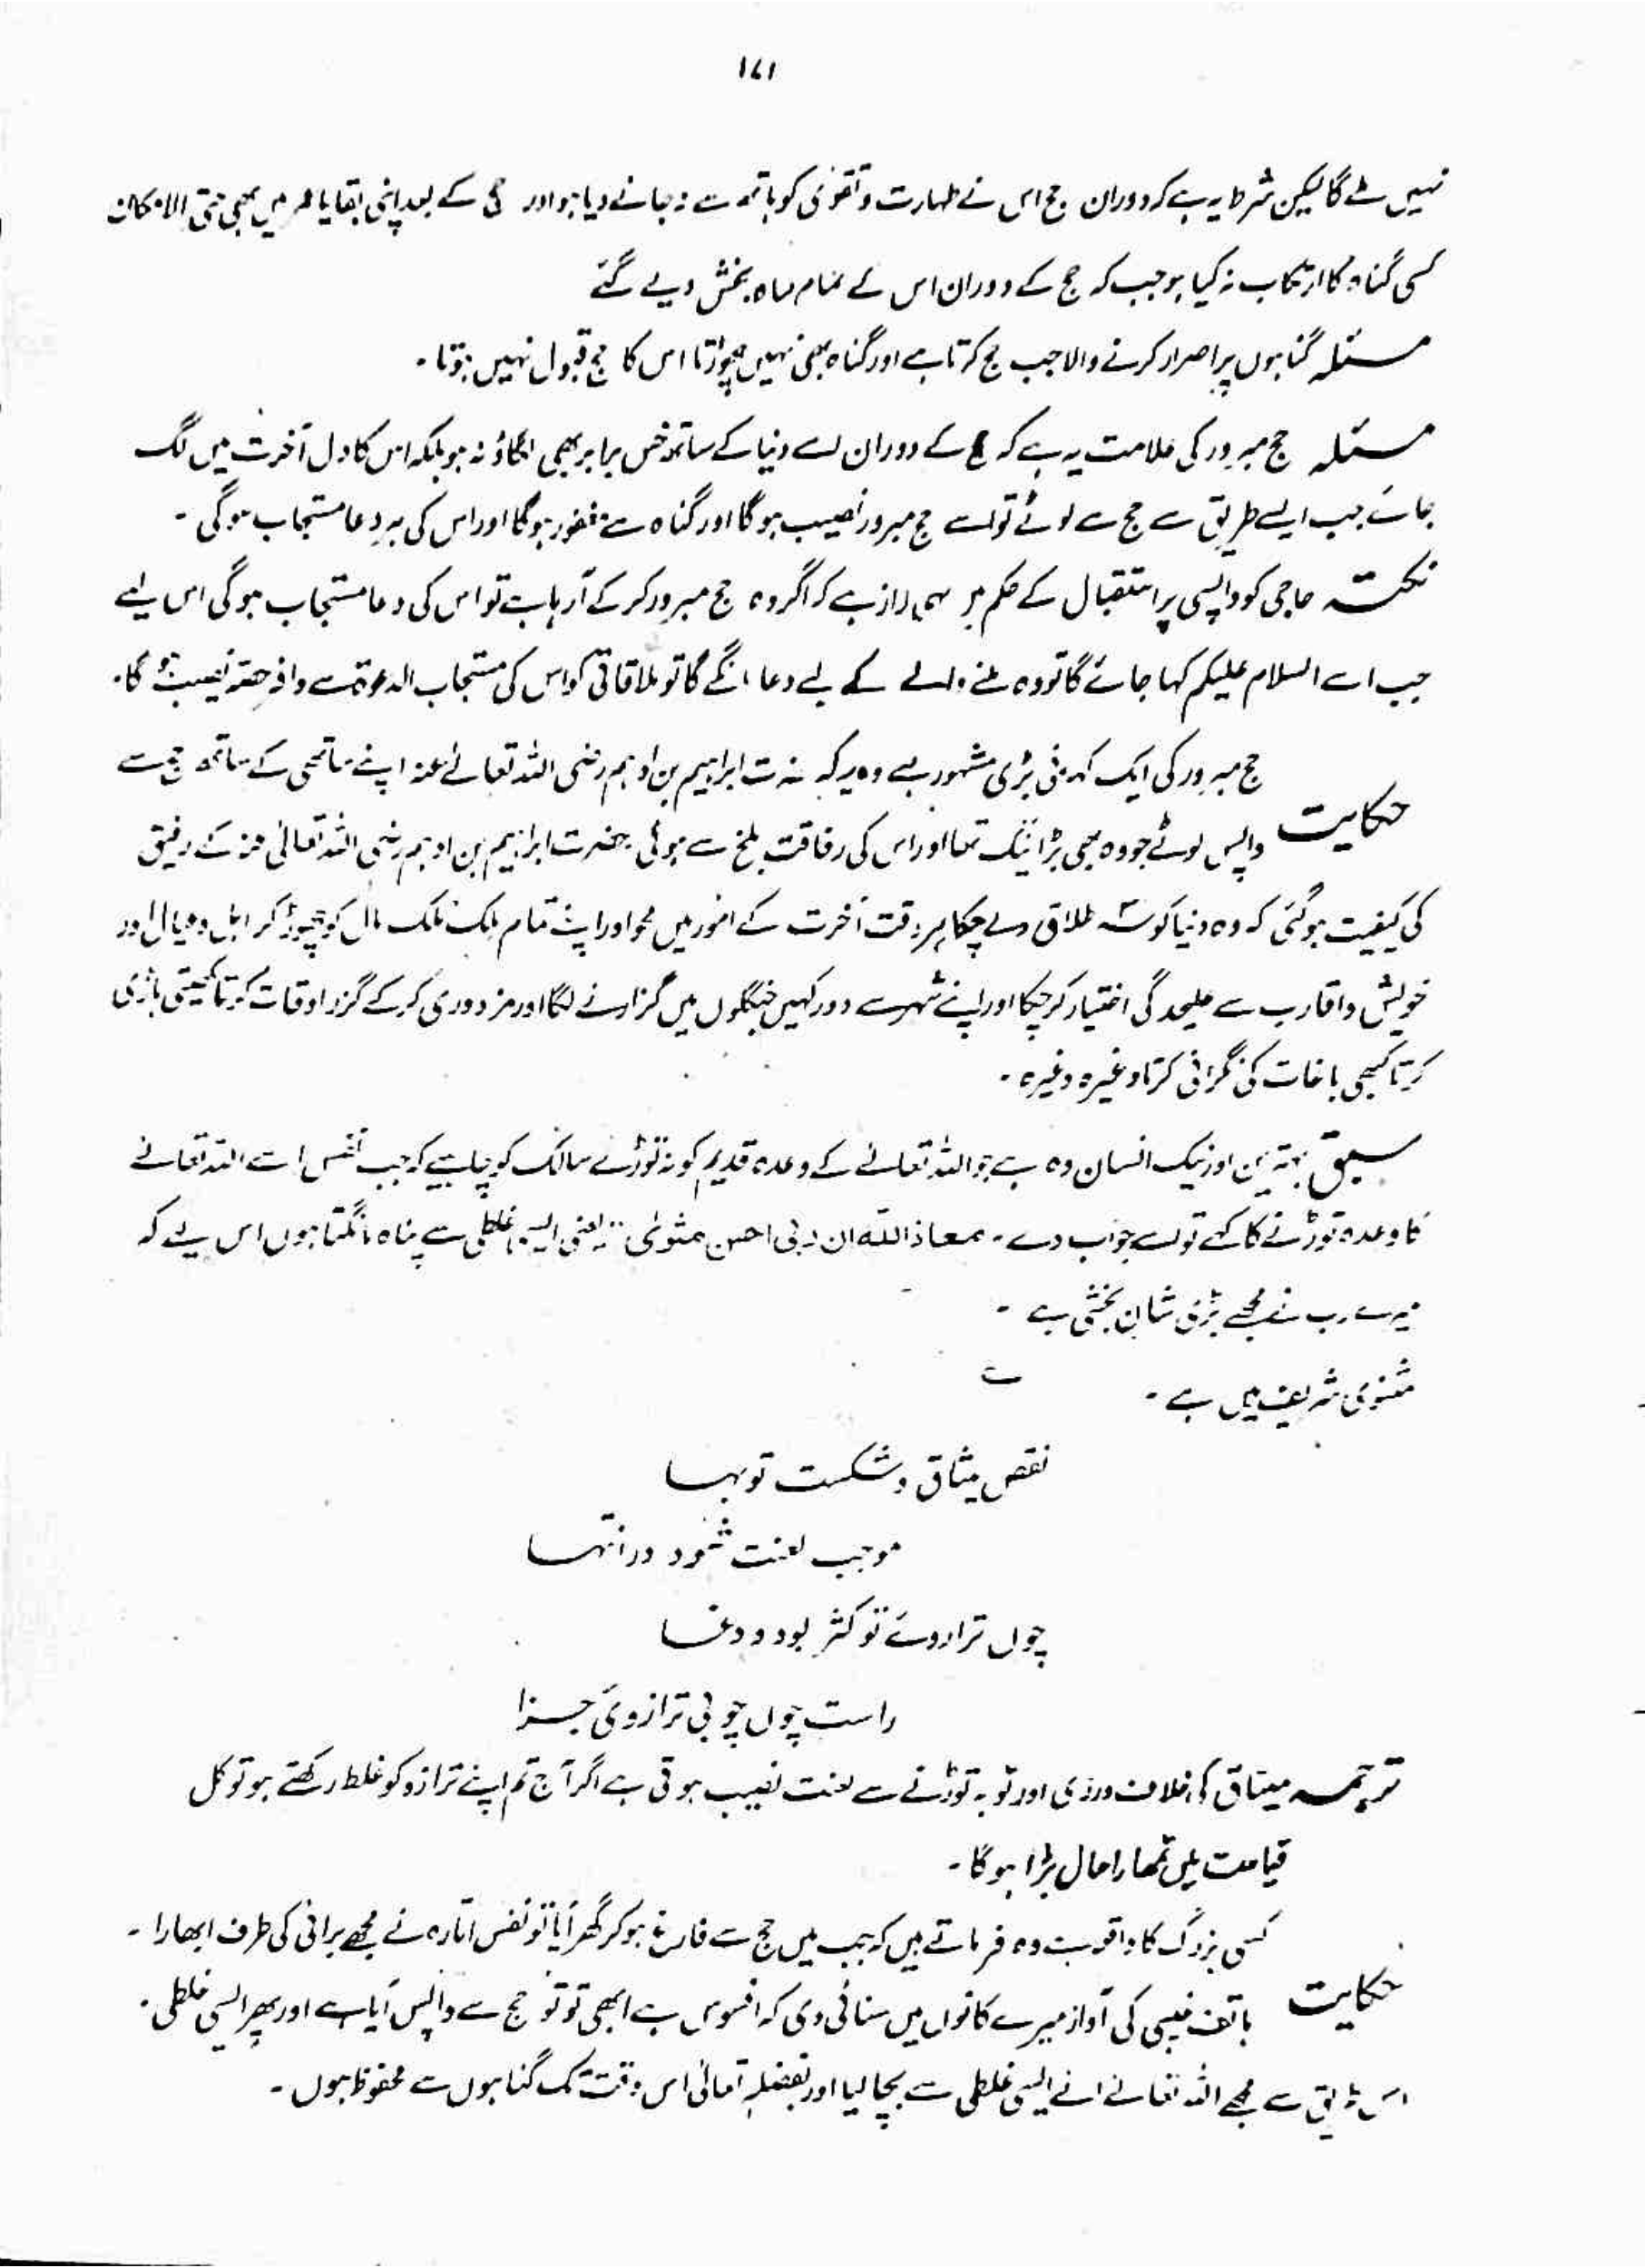 ۱۷۱
نہیں ملے گا لیکن شرط یہ ہے کہ دوران حج اس نے طہارت و تقویٰ کو ہاتھ سے نہ جانے دیا ہو اور حج کے بعد اپنی بقایا عمر میں بھی حتی الامکان
کسی گناہ کا ارتکاب نہ کیا ہو جب کہ حج کے دوران اس کے تمام گناہ بخش دیے گئے
مسئلہ گناہوں پر اصرار کرنے والا جب حج کرتا ہے اور گناہ بھی نہیں چھوڑتا اس کا حج قبول نہیں ہوتا ۔
مسئلہ حج مبرور کی علامت یہ ہے کہ حج کے دوران اسے دنیا کے ساتھ خس برابر بھی لگاؤ نہ ہو بلکہ اس کا دل آخرت میں لگ
جائے جب ایسے طریق سے حج سے لوٹے تو اسے حج مبرور نصیب ہو گا اور گناہ سے مغفور ہو گا اور اس کی ہر دعا مستجاب ہو گی ۔
نکتہ حاجی کو واپسی پر استقبال کے حکم میں یہی راز ہے کہ اگر وہ حج مبرور کر کے آ رہا ہے تو اس کی دعا مستجاب ہو گی اس لیے
جب اسے السلام علیکم کہا جائے گا تو وہ ملنے والے کے لیے دعا مانگے گا تو ملاقاتی کو اس کی مستجاب الدعوۃ سے وافر حصہ نصیب ہو گا ۔
حج مبرور کی ایک کہانی بڑی مشہور ہے وہ یہ کہ حضرت ابراہیم بن ادہم رضی اللہ تعالےٰ عنہ اپنے ساتھی کے ساتھ حج سے
حکایت واپس لوٹے جو وہ بھی بڑا نیک تھا اور اس کی رفاقت بلخ سے ہوئی حضرت ابراہیم بن ادہم رضی اللہ تعالیٰ عنہ کے رفیق
کی کیفیت ہو گئی کہ وہ دنیا کو سہ طلاق دے چکا ہر وقت آخرت کے امور میں محو اور اپنے تمام ملک ملک مال کو چھوڑ کر اہل و عیال اور
خویش و اقارب سے علیحدگی اختیار کر چکا اور اپنے شہر سے دور کہیں جنگلوں میں گزارنے لگا اور مزدوری کر کے گزر اوقات کرتا کھیتی باڑی
کرتا کبھی باغات کی نگرانی کرتا وغیرہ وغیرہ ۔
سبق بہترین اور نیک انسان وہ ہے جو اللہ تعالےٰ کے وعدہ قدیم کو نہ توڑے سالک کو چاہیے کہ جب نفس اسے اللہ تعالےٰ
کا وعدہ توڑنے کا کہے تو اسے جواب دے ۔ معاذ اللہ ان ربی احسن مثوای یعنی ایسی غلطی سے پناہ مانگتا ہوں اس لیے کہ
میرے رب نے مجھے بڑی شان بخشی ہے ۔
مثنوی شریف میں ہے ۔
نقض میثاق و شکست توبہا
موجب لعنت شود در انتہا
چوں ترازوئے تو کثر بود و دغا
راست چوں جوئی ترازوئ جزا
ترجمہ میثاق کی خلاف ورزی اور توبہ توڑنے سے لعنت نصیب ہوتی ہے اگر آج تم اپنے ترازو کو غلط رکھتے ہو تو کل
قیامت میں تمھارا حال بڑا ہو گا ۔
کسی بزرگ کا واقعہ ہے وہ فرماتے ہیں کہ جب میں حج سے فارغ ہو کر گھر آیا تو نفس امارہ نے مجھے برائی کی طرف ابھارا ۔
حکایت ہاتف غیبی کی آواز میرے کانوں میں سنائی دی کہ افسوس ہے ابھی تو تو حج سے واپس آیا ہے اور پھر ایسی غلطی ۔
اس طریق سے مجھے اللہ تعالےٰ نے ایسی غلطی سے بچا لیا اور بفضلہ تعالیٰ اس وقت تک گناہوں سے محفوظ ہوں ۔